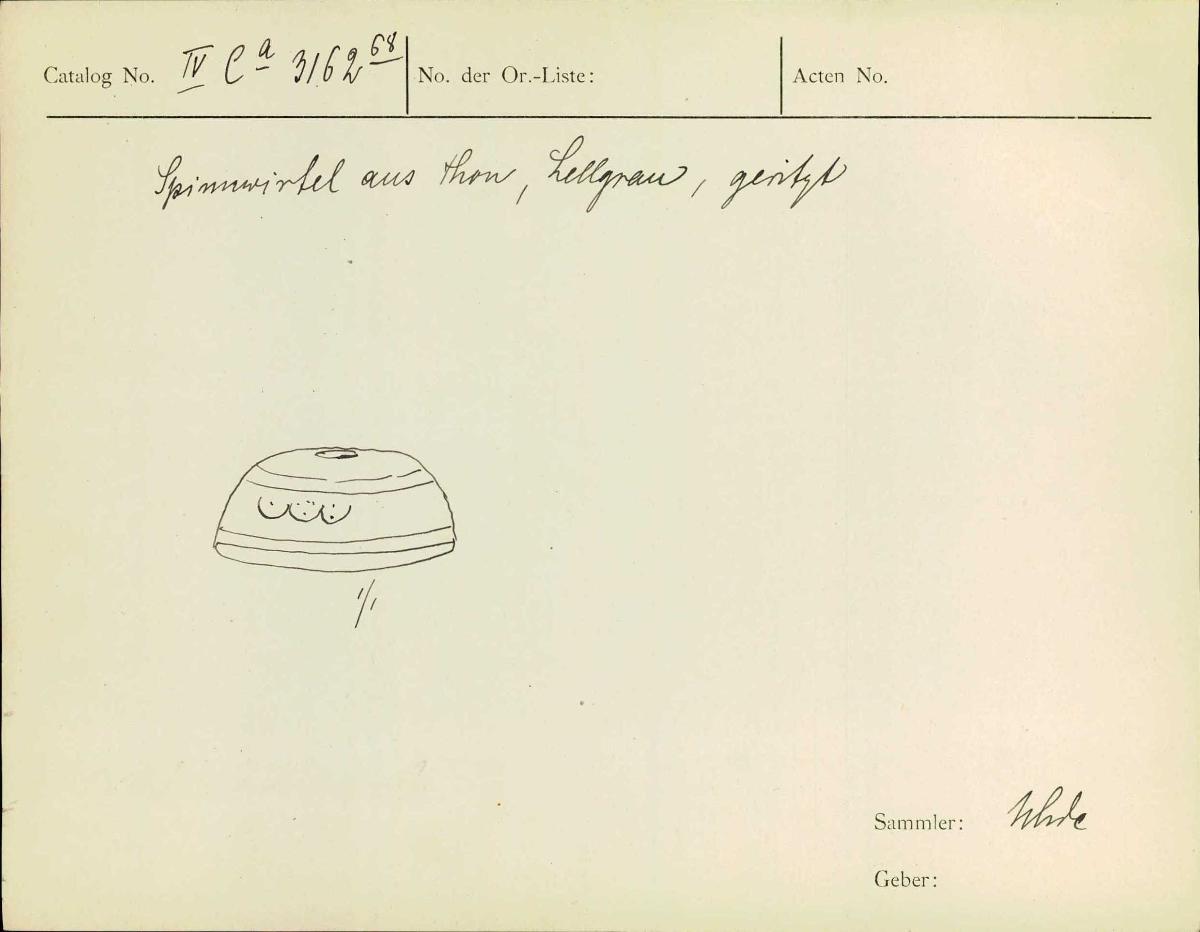 Catalog No. IV Ca 3162 68 No. der Or.-Liste: Acten No.
Spinnwirtel aus Thon, hellgrau, geritzt
1/1
Sammler: Uhde
Geber: